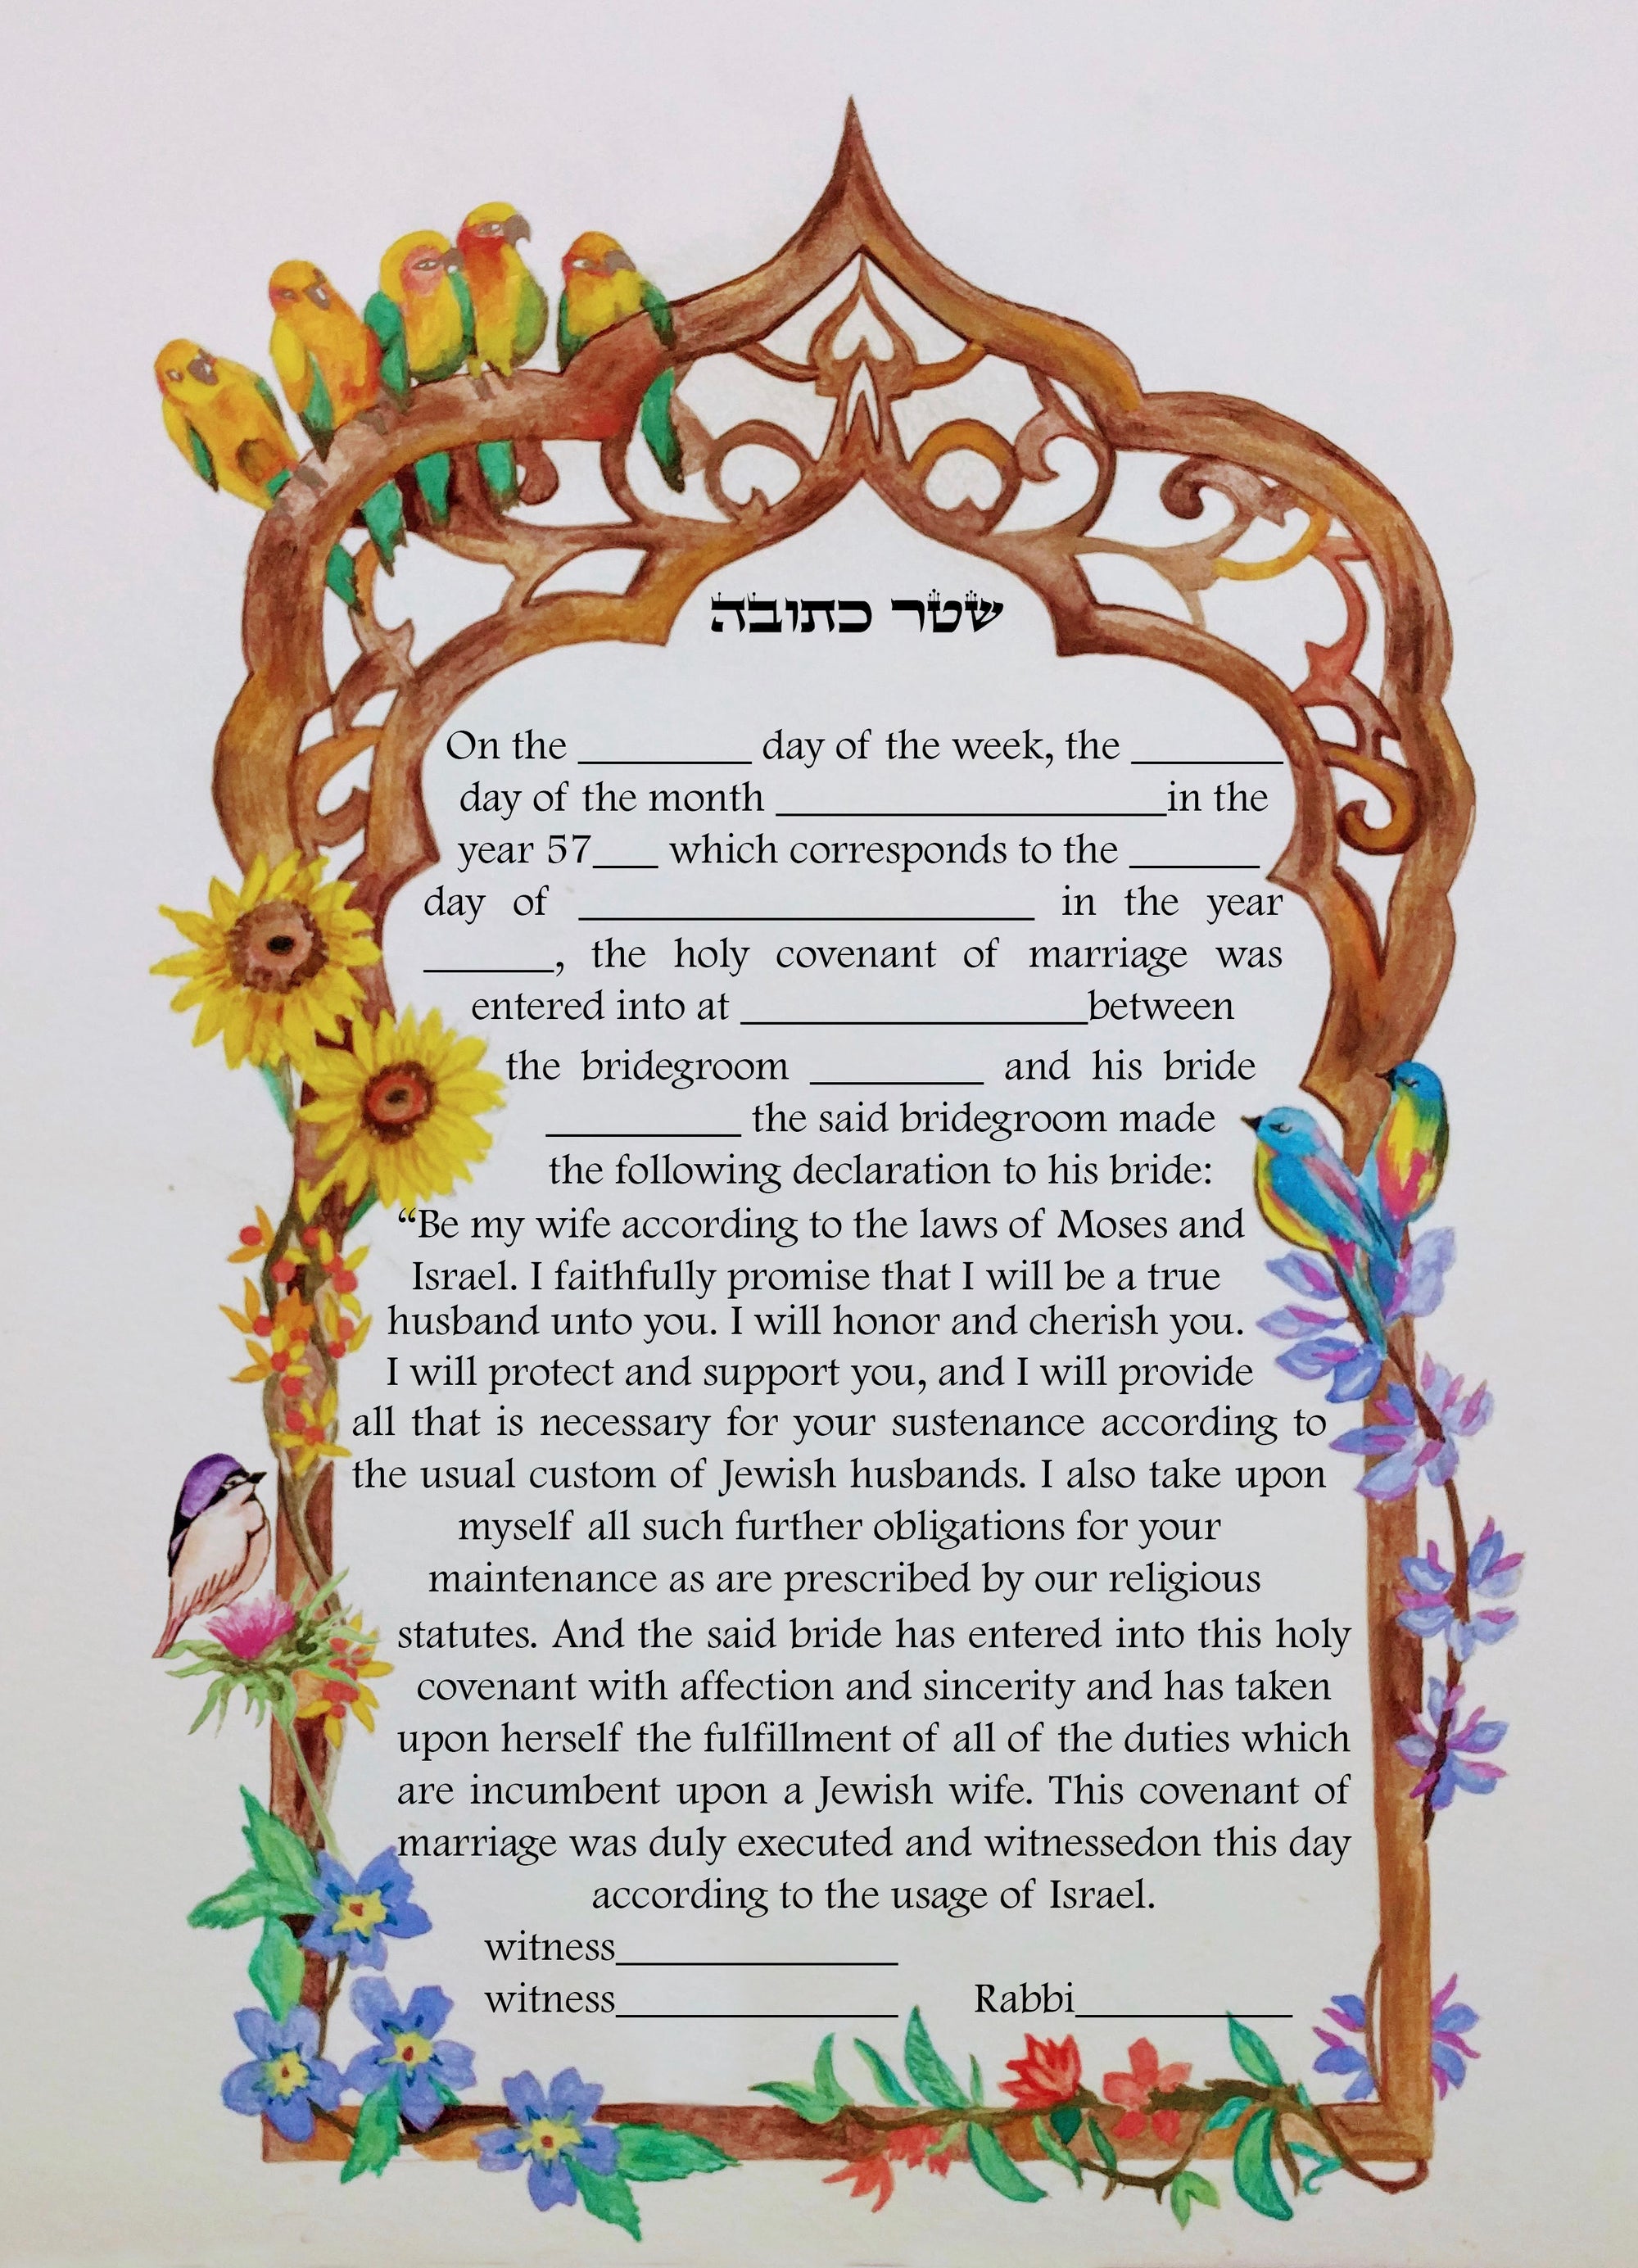 שטר כתובה
On the ________ day of the week, the _______
day of the month __________________in the
year 57___ which corresponds to the ______
day of _____________________ in the year
______, the holy covenant of marriage was
entered into at ________________between
the bridegroom ________ and his bride
_________ the said bridegroom made
the following declaration to his bride:
“Be my wife according to the laws of Moses and
Israel. I faithfully promise that I will be a true
husband unto you. I will honor and cherish you.
I will protect and support you, and I will provide
all that is necessary for your sustenance according to
the usual custom of Jewish husbands. I also take upon
myself all such further obligations for your
maintenance as are prescribed by our religious
statutes. And the said bride has entered into this holy
covenant with affection and sincerity and has taken
upon herself the fulfillment of all of the duties which
are incumbent upon a Jewish wife. This covenant of
marriage was duly executed and witnessedon this day
according to the usage of Israel.
witness_____________
witness_____________ Rabbi__________